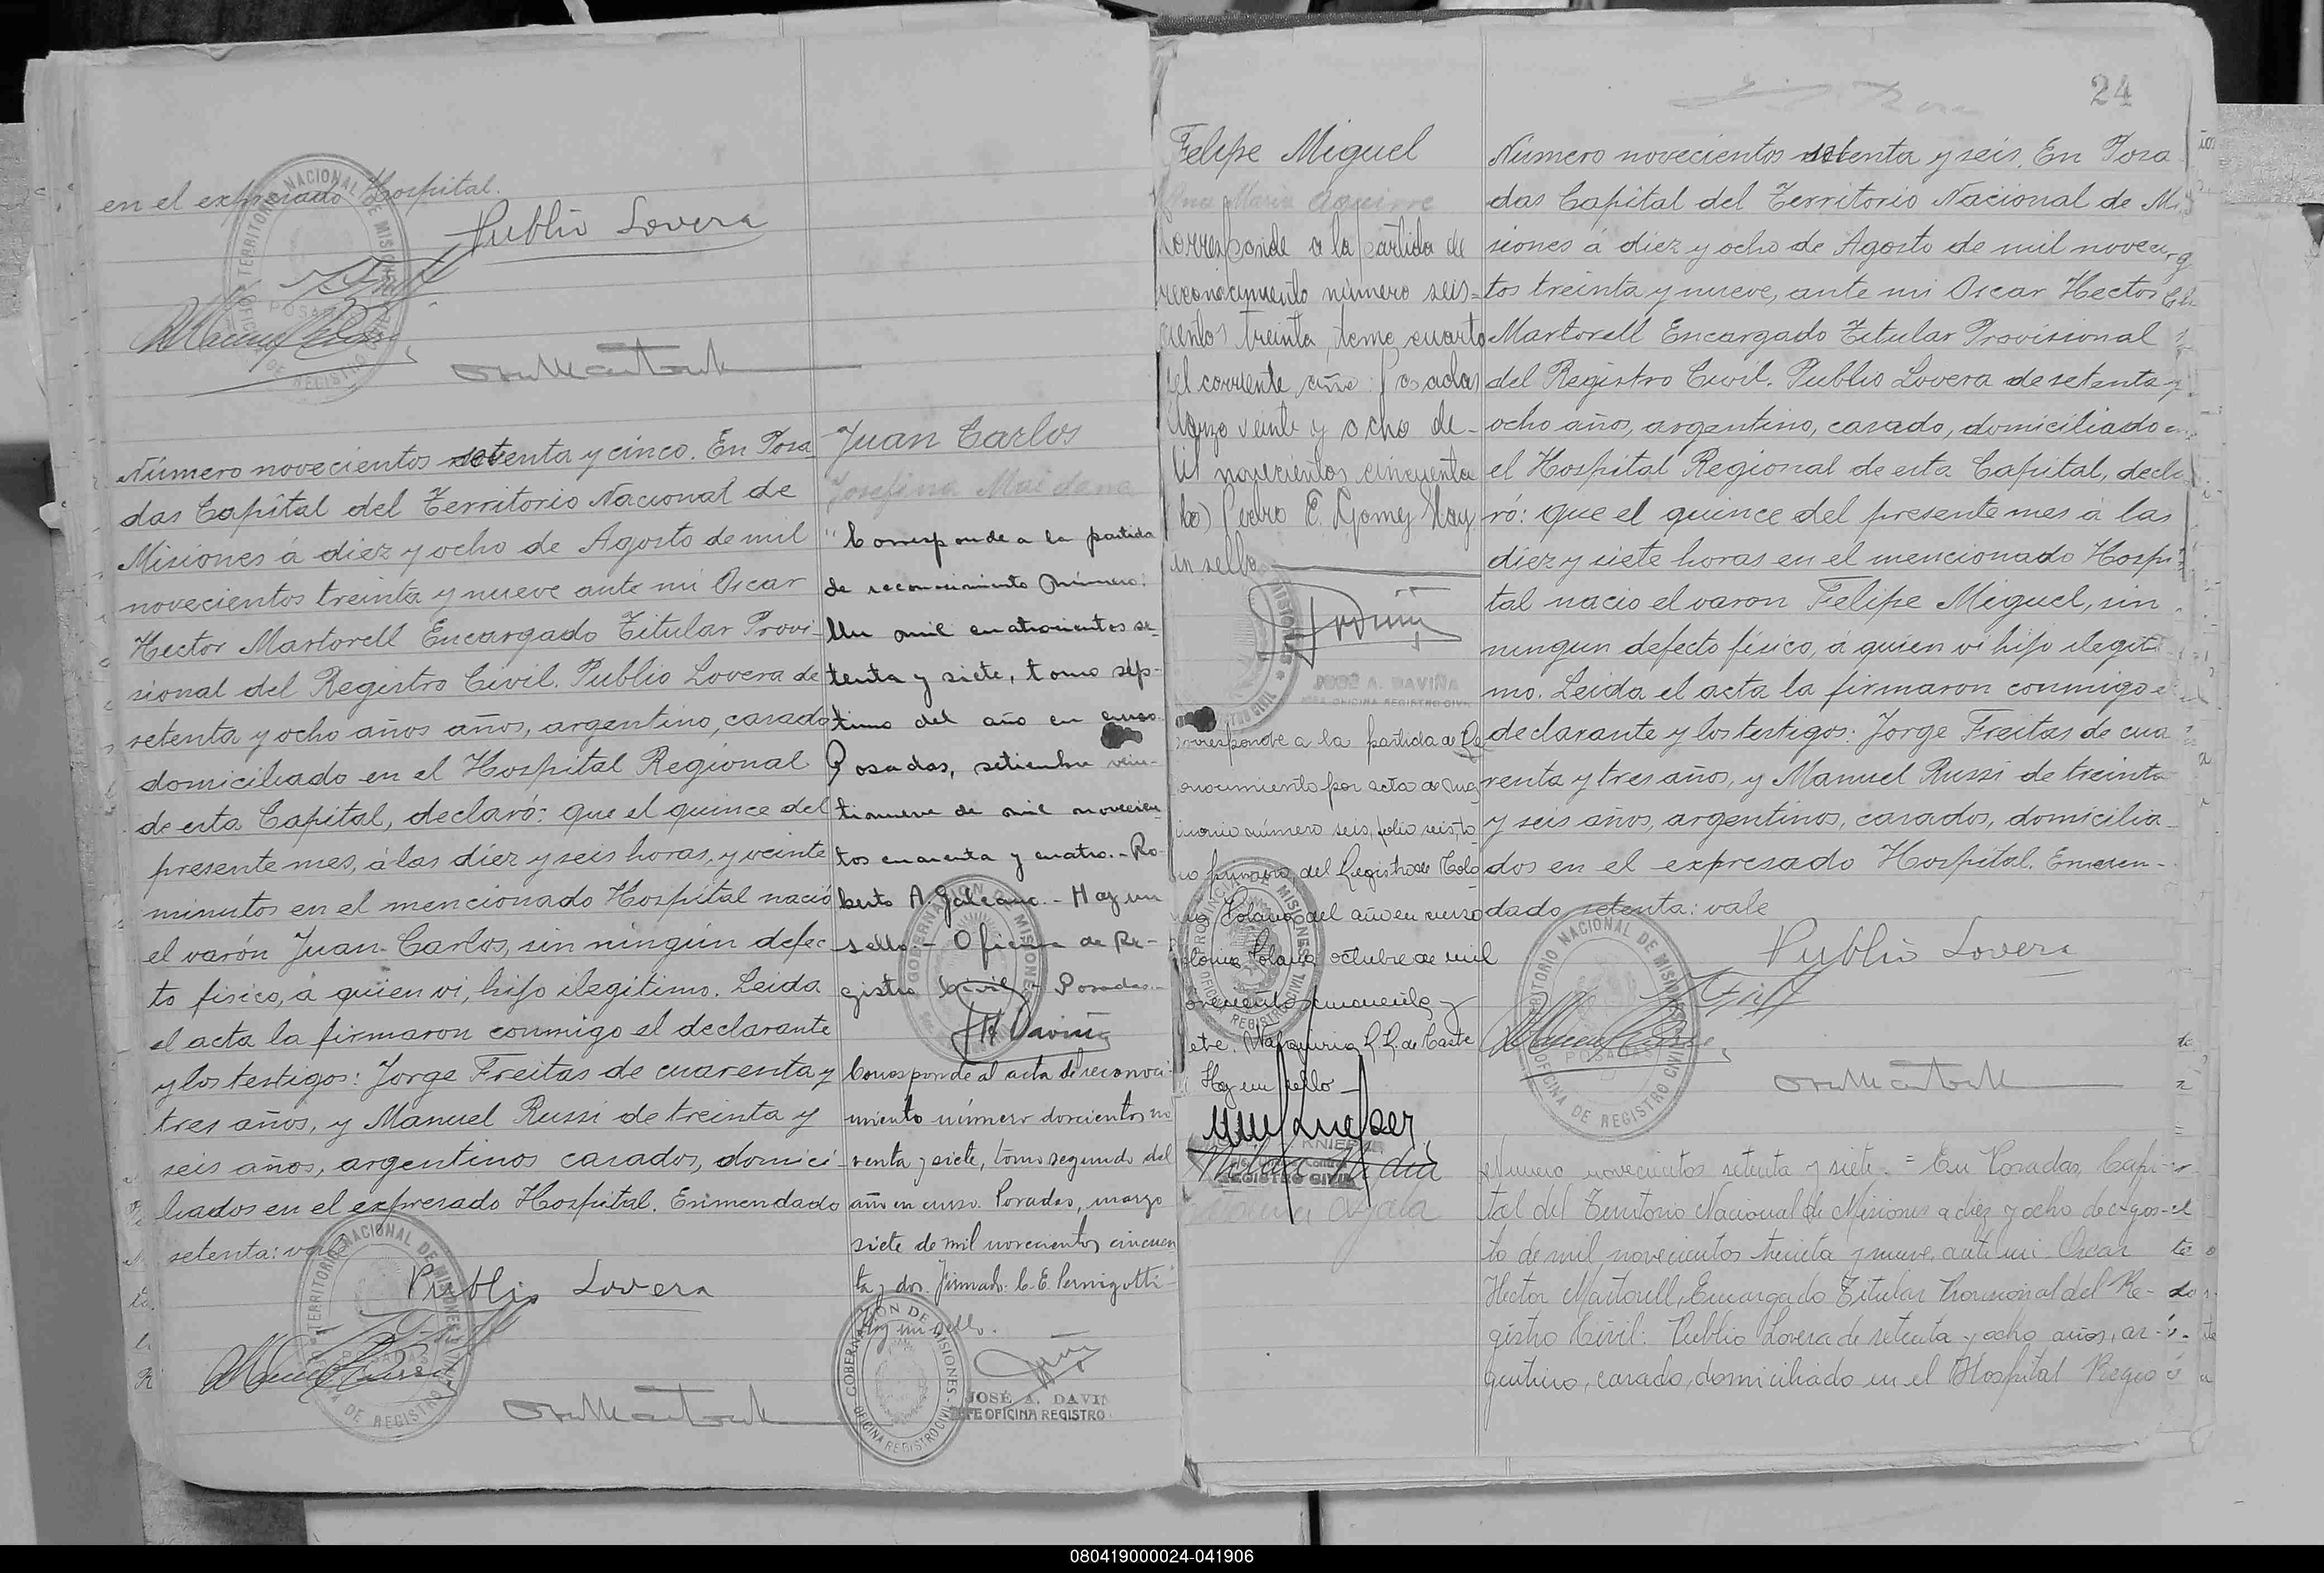 en el expresado Hospital.
Publio Lovera
Número novecientos setenta y cinco. En Posa
das Capital del Territorio Nacional de
Misiones á diez y ocho de Agosto de mil
novecientos treinta y nueve ante mi Oscar
Hector Martorell Encargado Titular Provi-
sional del Registro Civil. Publio Lovera de
setenta y ocho años años, argentino, casado
domiciliado en el Hospital Regional
de esta Capital, declaró: que el quince del
presente mes, á las diez y seis horas, y veinte
minutos en el mencionado Hospital nació
el varón Juan Carlos, sin ningún defec
to fisico, á quien vi, hijo ilegitimo. Leida
el acta la firmaron conmigo el declarante
y los testigos: Jorge Freitas de cuarenta y
tres años, y Manuel Russi de treinta y
seis años, argentinos casados, domici-
liados en el expresado Hospital. Enmendado
setenta: vale
Publio Lovera
Juan Carlos
Josefina Maidana
"Corresponde a la partida
de reconocimiento número:
Un mil cuatrocientos se-
tenta y siete, tomo sép-
timo del año en curso
Posadas, setiembre vein-
tinueve de mil novecien
tos cuarenta y cuatro.- Ro
berto A. Galeano.- Hay un
sello.- Oficina de Re-
gistro Civil - Posadas.-
Corresponde al acta de reconoci-
miento número doscientos no
venta y siete, tomo segundo del
año en curso. Posadas, marzo
siete de mil novecientos cincuen
ta y dos. Firmado: C. E. Pernigotti
Hay un sello.
GOBERNACIÓN DE MISIONES
OFICINA REGISTRO CIVIL
JOSÉ A. DAVIÑ
JEFE OFICINA REGISTRO
24
Felipe Miguel
Ana Maria Aguirre
Corresponde a la partida de
reconocimiento número seis-
cientos treinta, tomo cuarto
del corriente año. Posadas
Marzo veinte y ocho de
mil novecientos cincuenta
Pedro E. Gomez Hay
un sello
JOSE A. DAVIÑA
JEFE OFICINA REGISTRO CIVIL
Corresponde a la partida de Re
conocimiento por acta de ma
trimonio número seis, folio seis, to
mo primero, del Registro de Colo
nia Polana del año en curso
Colonia Polana octubre de mil
novecientos cincuenta y
siete.
Hay un sello
REGISTRO CIVIL
Ayala
Número novecientos setenta y seis. En Posa
das Capital del Territorio Nacional de Mi
siones á diez y ocho de Agosto de mil novecien
tos treinta y nueve, ante mi Oscar Hector
Martorell Encargado Titular Provisional
del Registro Civil. Publio Lovera de setenta y
ocho años, argentino, casado, domiciliado en
el Hospital Regional de esta Capital, decla
ró: que el quince del presente mes á las
diez y siete horas en el mencionado Hospi
tal nacio el varon Felipe Miguel, sin
ningun defecto físico, á quien vi hijo ilegiti
mo. Leida el acta la firmaron conmigo el
declarante y los testigos: Jorge Freitas de cua
renta y tres años, y Manuel Russi de treinta
y seis años, argentinos, casados, domicilia-
dos en el expresado Hospital. Enmen-
dado setenta: vale
Publio Lovera
TERRITORIO NACIONAL DE MISIONES
POSADAS
OFICINA DE REGISTRO CIVIL
Número novecientos setenta y siete.= En Posadas, Capi-
tal del Territorio Nacional de Misiones a diez y ocho de Agos-
to de mil novecientos treinta y nueve, ante mi Oscar
Hector Martorell, Encargado Titular Provisional del Re-
gistro Civil: Publio Lovera de setenta y ocho años, ar-
gentino, casado, domiciliado en el Hospital Regio
080419000024-041906